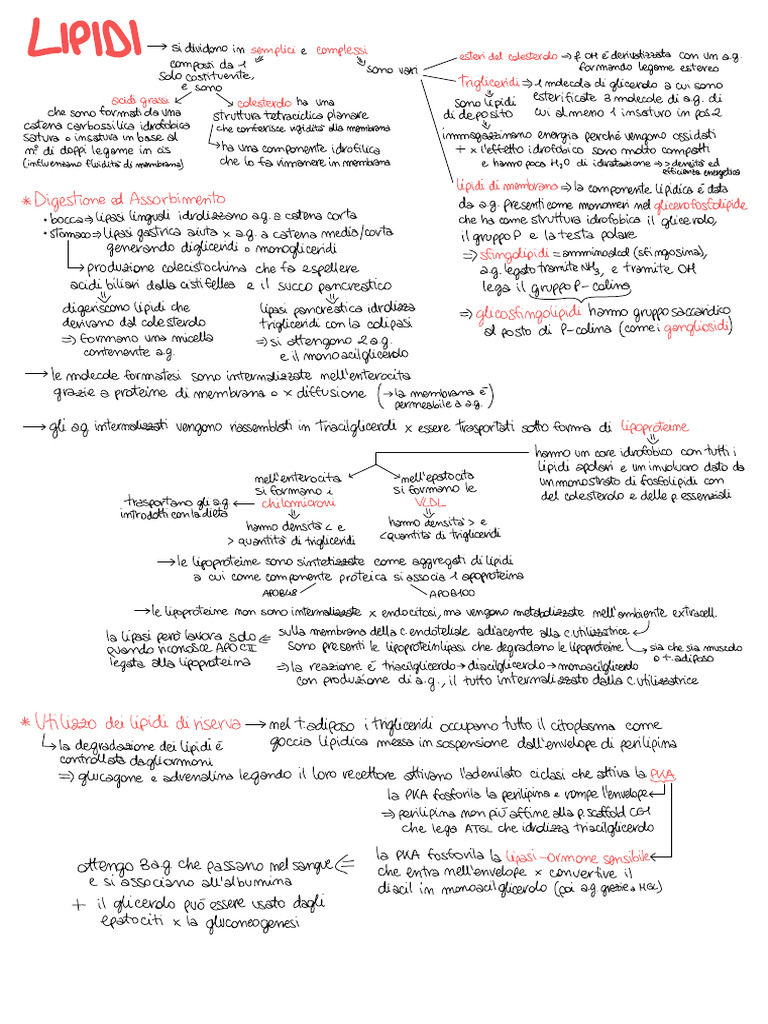 LIPIDI → si dividono in semplici e complessi
composti da 1
solo costituente,
e sono
acidi grassi
che sono formati da una
catena carbossilica idrofobica
satura o insatura in base al
n° di doppi legame in cis
(influenzano fluidità di membrana)
colesterolo ha una
struttura tetraciclica planare
che conferisce rigidità alla membrana
ha una componente idrofilica
che lo fa rimanere in membrana
sono vari
esteri del colesterolo → OH è derivatizzata con un a.g.
formando legame estereo
Trigliceridi ⇒ 1 molecola di glicerolo a cui sono
esterificate 3 molecole di a.g. di
cui almeno 1 insaturo in pos.2
sono lipidi
di deposito
immagazzinano energia perché vengono ossidati
+ x l'effetto idrofobico sono molto compatti
e hanno poca H2O di idratazione ⇒ > densità ed
efficienza energetica
lipidi di membrana ⇒ la componente lipidica è data
da a.g. presenti come monomeri nel glicerofosfolipide
che ha come struttura idrofobica il glicerolo,
il gruppo P e la testa polare
⇒ sfingolipidi = amminoalcol (sfingosina),
a.g. legato tramite NH3, e tramite OH
lega il gruppo P-colina
⇒ glicosfingolipidi hanno gruppo saccaridico
al posto di P-colina (come i gangliosidi)
* Digestione ed Assorbimento
• bocca ⇒ lipasi linguali idrolizzano a.g. a catena corta
• stomaco ⇒ lipasi gastrica aiuta x a.g. a catena media/corta
generando digliceridi o monogliceridi
→ produzione colecistochina che fa espellere
acidi biliari dalla cistifellea e il succo pancreatico
digeriscono lipidi che
derivano dal colesterolo
⇒ formano una micella
contenente a.g.
lipasi pancreatica idrolizza
trigliceridi con la colipasi
⇒ si ottengono 2 a.g.
e il monoacilglicerolo
→ le molecole formatesi sono internalizzate nell'enterocita
grazie a proteine di membrana o x diffusione (→ la membrana è
permeabile a a.g.)
→ gli a.g internalizzati vengono riassemblati in Triacilgliceroli x essere trasportati sotto forma di lipoproteine
hanno un core idrofobico con tutti i
lipidi apolari e un involucro dato da
un monostrato di fosfolipidi con
del colesterolo e delle p. essenziali
nell'enterocita
si formano i
chilomicroni
trasportano gli a.g
introdotti con la dieta
hanno densità < e
> quantità di trigliceridi
nell'epatocita
si formano le
VLDL
hanno densità > e
< quantità di trigliceridi
→ le lipoproteine sono sintetizzate come aggregati di lipidi
a cui come componente proteica si associa 1 apoproteina
APOB48 APOB100
→ le lipoproteine non sono internalizzate x endocitosi, ma vengono metabolizzate nell'ambiente extracell.
sulla membrana della c. endoteliale adiacente alla c. utilizzatrice
sono presenti le lipoproteinlipasi che degradano le lipoproteine
sia che sia muscolo
o t. adiposo
la lipasi però lavora solo
quando riconosce APO CII
legata alla lipoproteina
⇒ la reazione è triacilglicerolo → diacilglicerolo → monoacilglicerolo
con produzione di a.g., il tutto internalizzato dalla c. utilizzatrice
* Utilizzo dei lipidi di riserva → nel t. adiposo i trigliceridi occupano tutto il citoplasma come
goccia lipidica messa in sospensione dall'envelope di perilipina
→ la degradazione dei lipidi è
controllata dagli ormoni
⇒ glucagone e adrenalina legando il loro recettore attivano l'adenilato ciclasi che attiva la PKA
la PKA fosforila la perilipina e rompe l'envelope
⇒ perilipina non più affine alla p. scaffold CGI
che lega ATGL che idrolizza triacilglicerolo
la PKA fosforila la lipasi-ormone sensibile
che entra nell'envelope x convertire il
diacil in monoacilglicerolo (poi a.g grazie a MGL)
ottengo 3 a.g che passano nel sangue
e si associano all'albumina
+ il glicerolo può essere usato dagli
epatociti x la gluconeogenesi